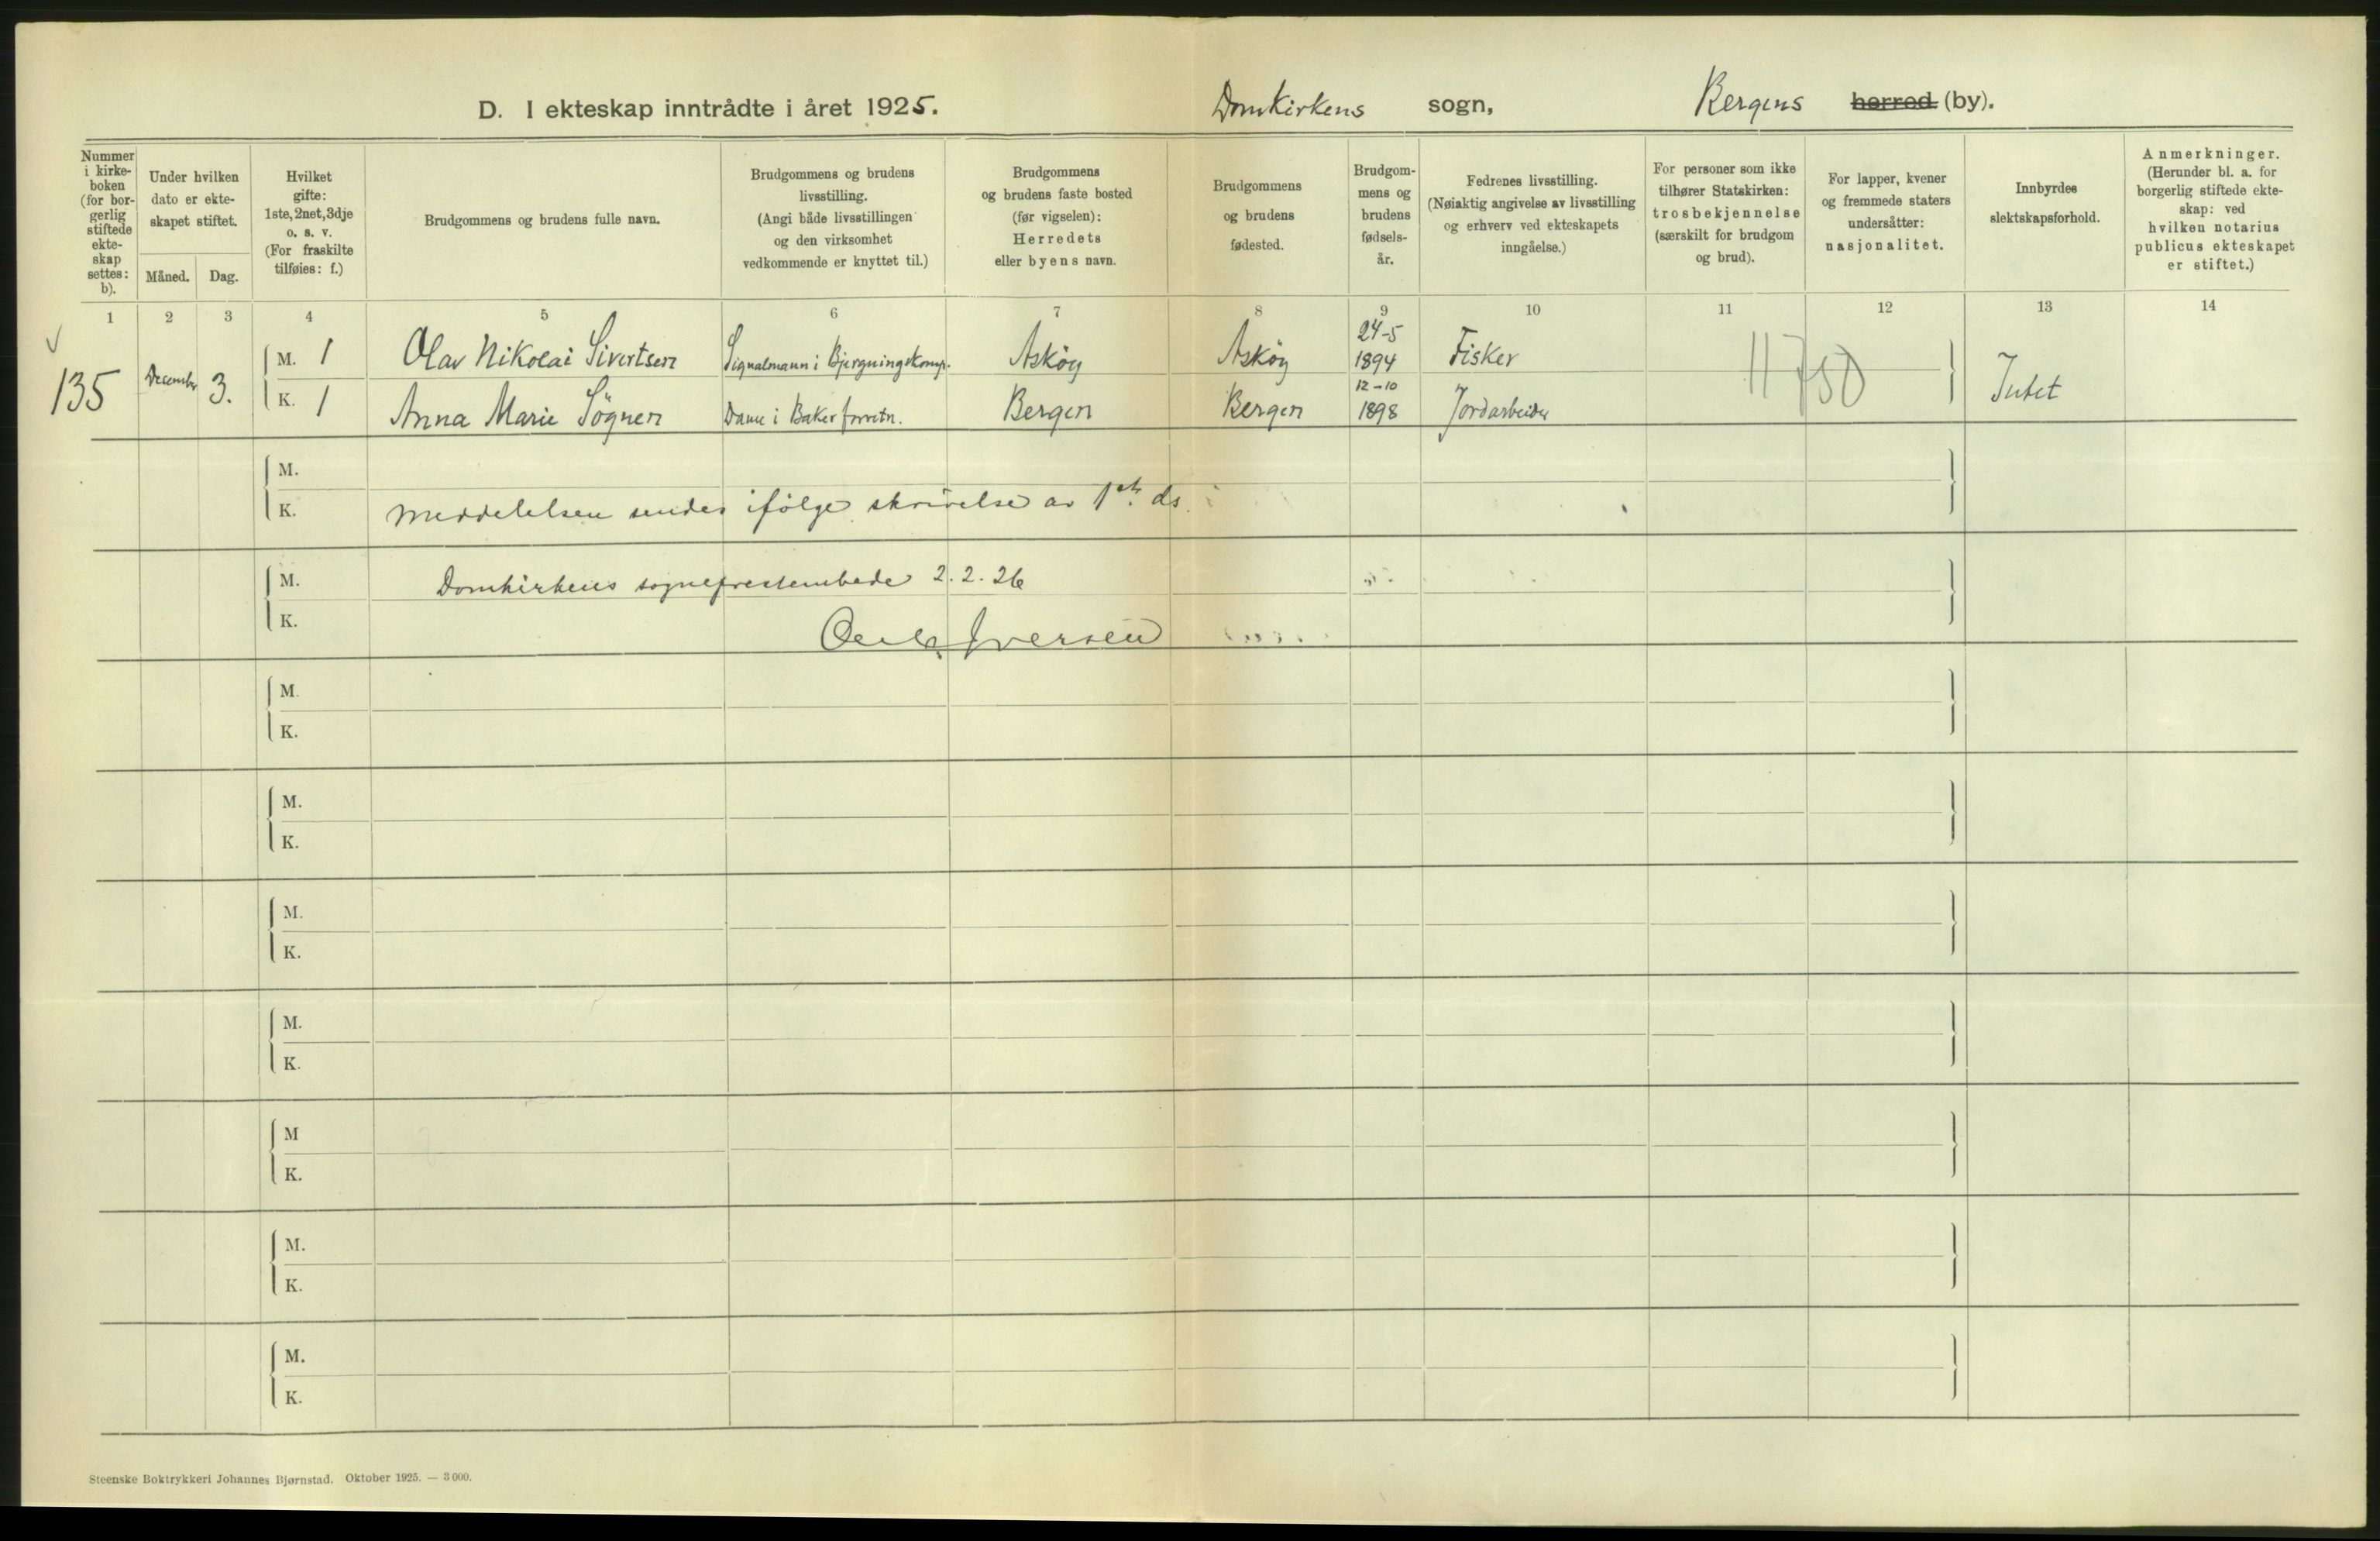 D. I ekteskap inntrådte i året 1925. Domkirkens sogn, Bergens herred (by).
Nummer
i kirke-
boken
(for bor-
gerlig
stiftede
ekte-
skap
settes:
b).
Under hvilken
dato er ekte-
skapet stiftet.
Måned. Dag.
Hvilket
gifte:
1ste, 2net, 3dje
o. s. v.
(For fraskilte
tilføies: f.)
Brudgommens og brudens fulle navn.
Brudgommens og brudens
livsstilling.
(Angi både livsstillingen
og den virksomhet
vedkommende er knyttet til.)
Brudgommens
og brudens faste bosted
(før vigselen):
Herredets
eller byens navn.
Brudgommens
og brudens
fødested.
Brudgom-
mens og
brudens
fødsels-
år.
Fedrenes livsstilling.
(Nøiaktig angivelse av livsstilling
og erhverv ved ekteskapets
inngåelse.)
For personer som ikke
tilhører Statskirken:
trosbekjennelse
(særskilt for brudgom
og brud).
For lapper, kvener
og fremmede staters
undersåtter:
nasjonalitet.
Innbyrdes
slektskapsforhold.
Anmerkninger.
(Herunder bl. a. for
borgerlig stiftede ekte-
skap: ved
hvilken notarius
publicus ekteskapet
er stiftet.)
1 2 3 4 5 6 7 8 9 10 11 12 13 14
135 Desember 3.
M. 1 Olav Nikolai Sivertsen Signalmann i Bjergningskomp. Asköy Asköy 24-5 1894 Fisker
K. 1 Anna Marie Sögnen Dame i Baker forretn. Bergen Bergen 12-10 1898 Jordarbeider
11750 Intet
M.
K. Meddelelsen sendes ifölge skrivelse av 1ste ds.
M. Domkirkens sogneprestembede 2.2.26
K. Iversen
M.
K.
M.
K.
M.
K.
M.
K.
M
K.
M.
K.
M.
K.
Steenske Boktrykkeri Johannes Bjørnstad. Oktober 1925. — 3 000.